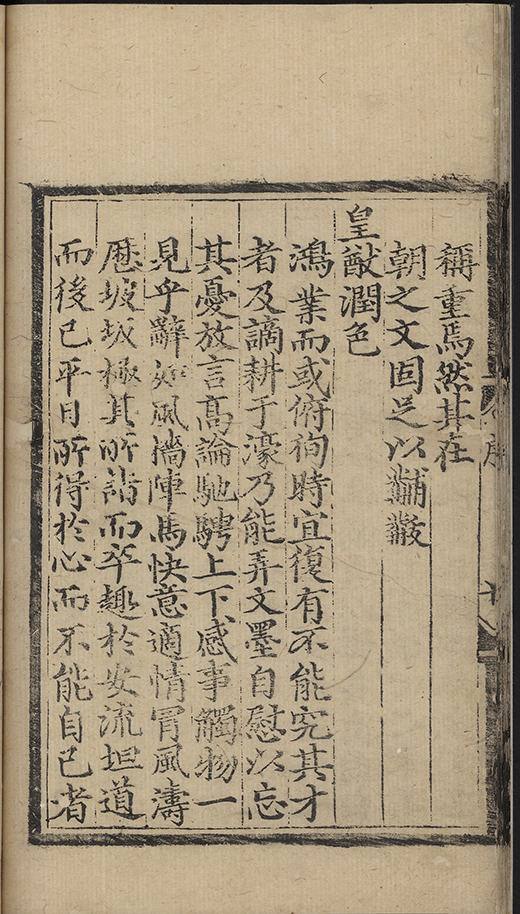 稱重焉然其在
朝之文固足以黼黻
皇猷潤色
鴻業而或俯徇時宜復有不能究其才
者及謫耕于濠乃能弄文墨自慰以忘
其憂放言高論馳騁上下感事觸物一
見乎辭如風檣陣馬快意適情冐風濤
歷坡坂極其所詣而卒趣於安流坦道
而後已平日所得於心而不能自已者